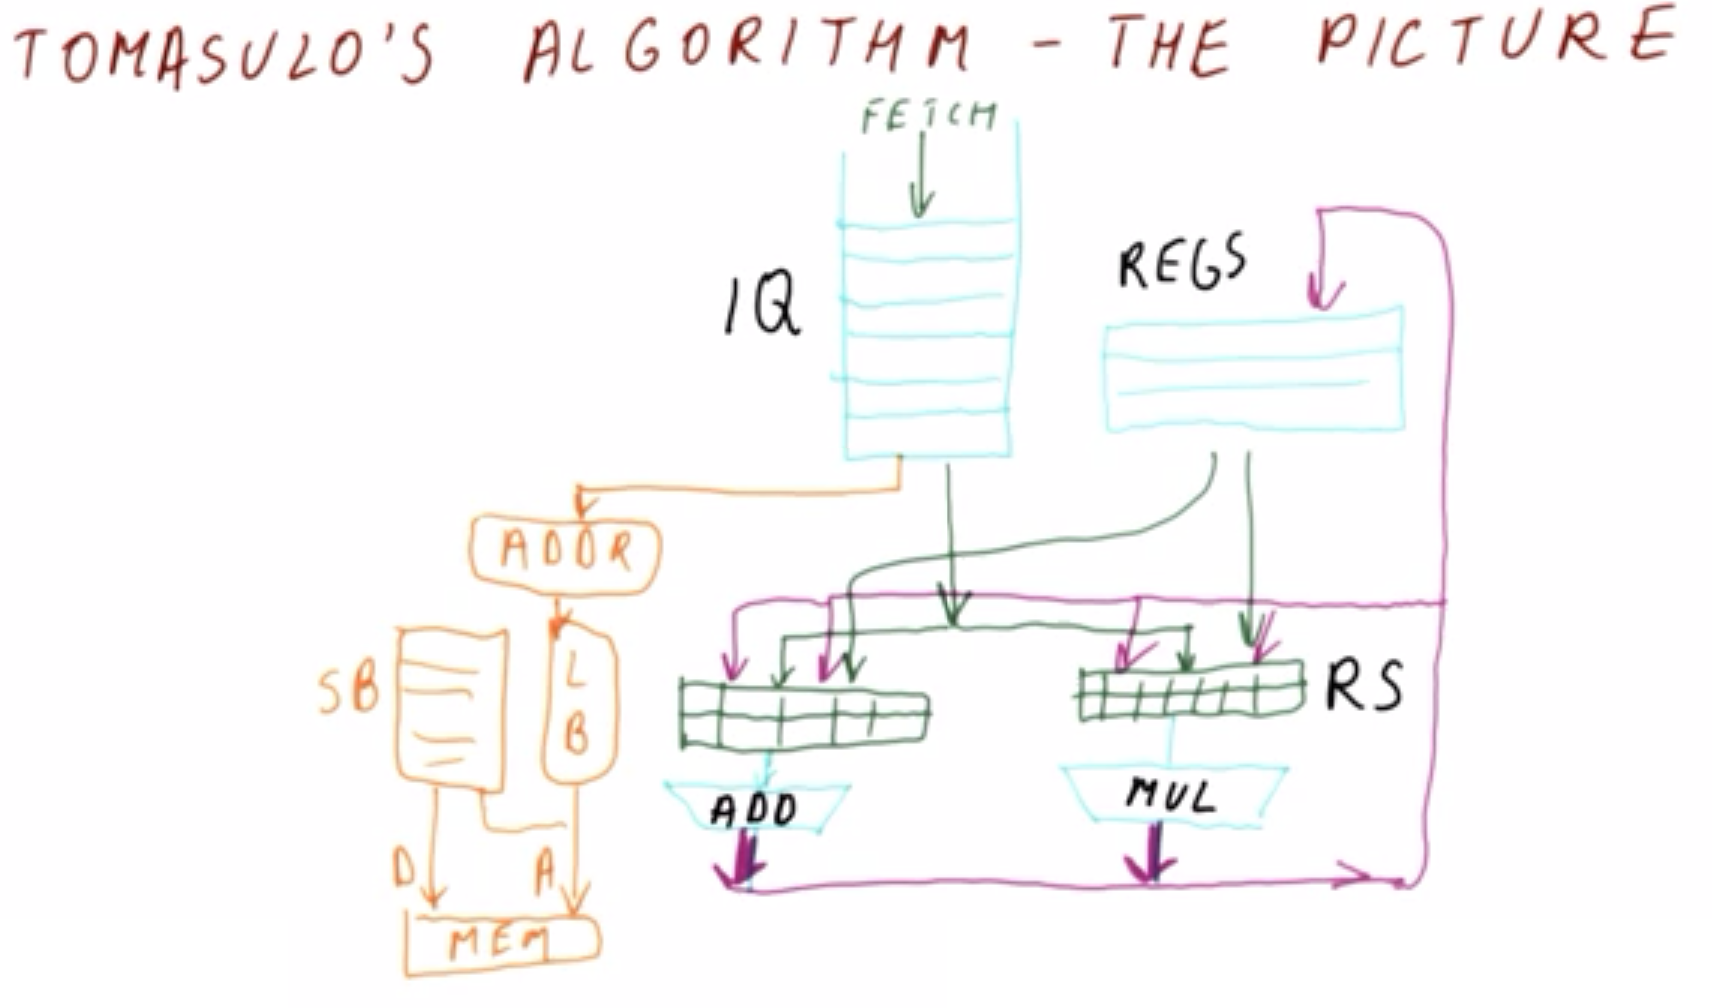 TOMASULO'S ALGORITHM - THE PICTURE
FETCH
IQ
REGS
ADDR
SB
L
B
RS
ADD
MUL
D
A
MEM